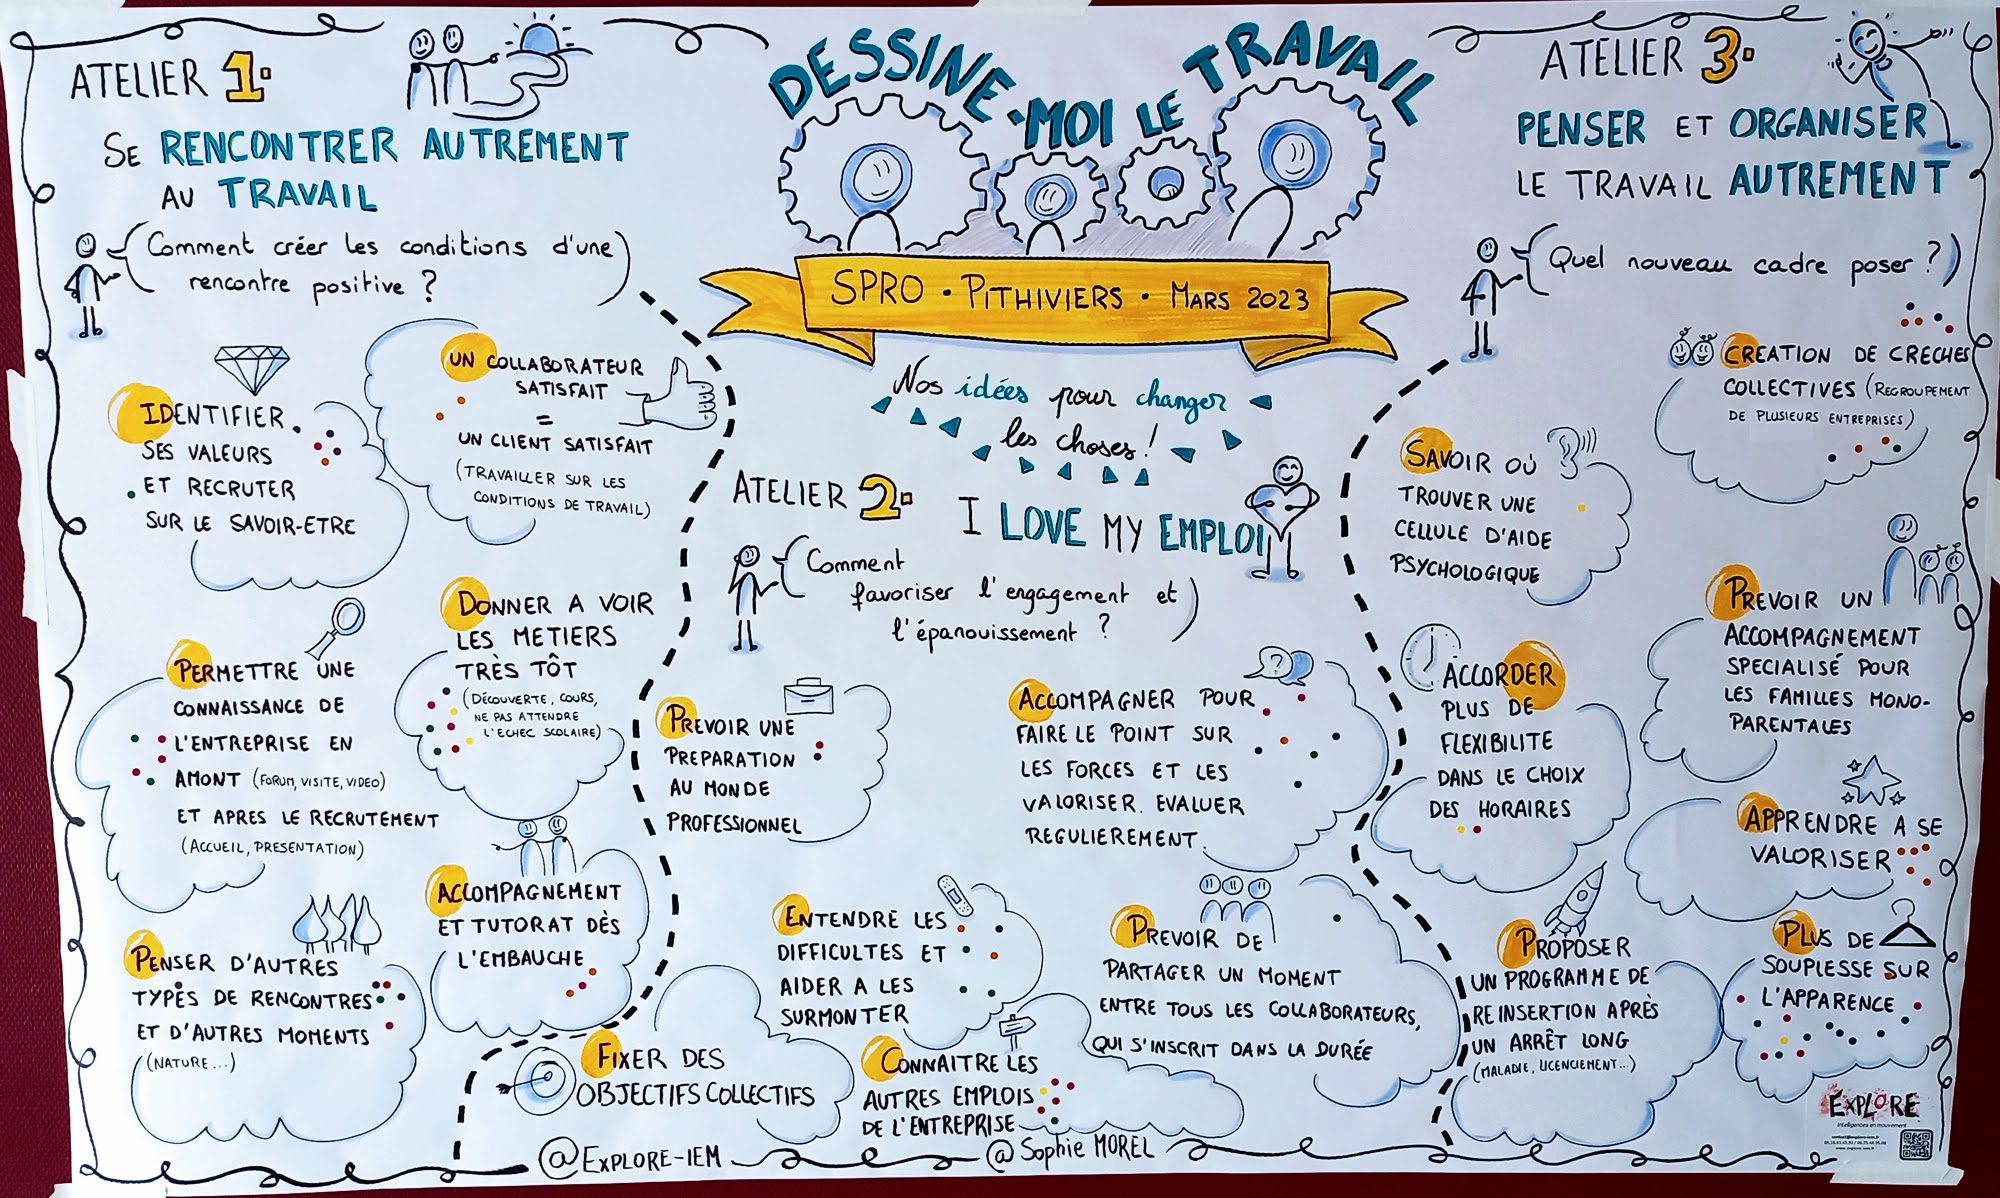 DESSINE-MOI LE TRAVAIL
SPRO • PITHIVIERS • MARS 2023
Nos idées pour changer
les choses !
ATELIER 1.
SE RENCONTRER AUTREMENT
AU TRAVAIL
Comment créer les conditions d'une
rencontre positive ?
IDENTIFIER
SES VALEURS
ET RECRUTER
SUR LE SAVOIR-ETRE
UN COLLABORATEUR
SATISFAIT
=
UN CLIENT SATISFAIT
(TRAVAILLER SUR LES
CONDITIONS DE TRAVAIL)
PERMETTRE UNE
CONNAISSANCE DE
L'ENTREPRISE EN
AMONT (FORUM, VISITE, VIDEO)
ET APRES LE RECRUTEMENT
(ACCUEIL, PRESENTATION)
DONNER A VOIR
LES METIERS
TRÈS TÔT
(DÉCOUVERTE, COURS,
NE PAS ATTENDRE
L'ECHEC SCOLAIRE)
PENSER D'AUTRES
TYPES DE RENCONTRES
ET D'AUTRES MOMENTS
(NATURE...)
ACCOMPAGNEMENT
ET TUTORAT DÈS
L'EMBAUCHE
ATELIER 2.
I LOVE MY EMPLOI
Comment
favoriser l'engagement et
l'épanouissement ?
PREVOIR UNE
PREPARATION
AU MONDE
PROFESSIONNEL
?
ACCOMPAGNER POUR
FAIRE LE POINT SUR
LES FORCES ET LES
VALORISER. EVALUER
REGULIEREMENT.
ENTENDRE LES
DIFFICULTES ET
AIDER A LES
SURMONTER
PREVOIR DE
PARTAGER UN MOMENT
ENTRE TOUS LES COLLABORATEURS,
QUI S'INSCRIT DANS LA DURÉE
FIXER DES
OBJECTIFS COLLECTIFS
CONNAITRE LES
AUTRES EMPLOIS
DE L'ENTREPRISE
ATELIER 3.
PENSER ET ORGANISER
LE TRAVAIL AUTREMENT
Quel nouveau cadre poser ?
CREATION DE CRECHES
COLLECTIVES (REGROUPEMENT
DE PLUSIEURS ENTREPRISES)
SAVOIR OÙ
TROUVER UNE
CELLULE D'AIDE
PSYCHOLOGIQUE
PREVOIR UN
ACCOMPAGNEMENT
SPECIALISÉ POUR
LES FAMILLES MONO-
PARENTALES
ACCORDER
PLUS DE
FLEXIBILITE
DANS LE CHOIX
DES HORAIRES
APPRENDRE A SE
VALORISER
PROPOSER
UN PROGRAMME DE
REINSERTION APRÈS
UN ARRÊT LONG
(MALADIE, LICENCIEMENT...)
PLUS DE
SOUPLESSE SUR
L'APPARENCE
@EXPLORE-IEM
@Sophie MOREL
EXPLORE
Intelligences en mouvement
contact@explore-iem.fr
www.explore-iem.fr